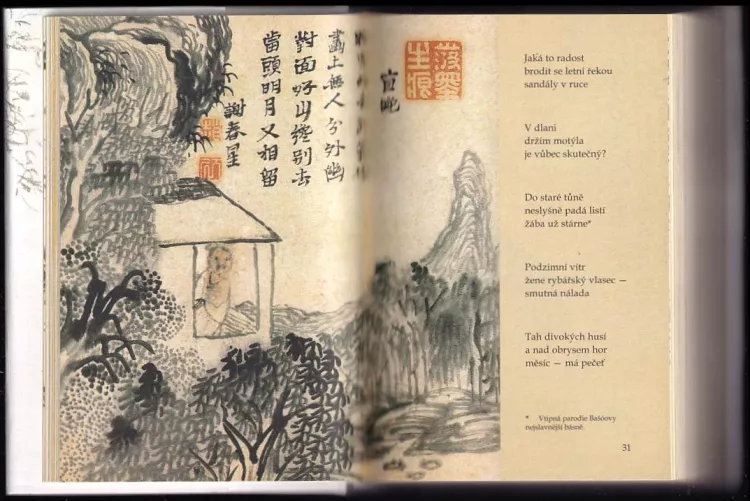 宜晩
潑墨
生痕
畫上無人分外幽
對面好山纔別去
當頭明月又相留
謝春星
Jaká to radost
brodit se letní řekou
sandály v ruce
V dlani
držím motýla
je vůbec skutečný?
Do staré tůně
neslyšně padá listí
žába už stárne*
Podzimní vítr
žene rybářský vlasec —
smutná nálada
Tah divokých husí
a nad obrysem hor
měsíc — má pečeť
* Vtipná parodie Bašóovy
nejslavnější básně.
31